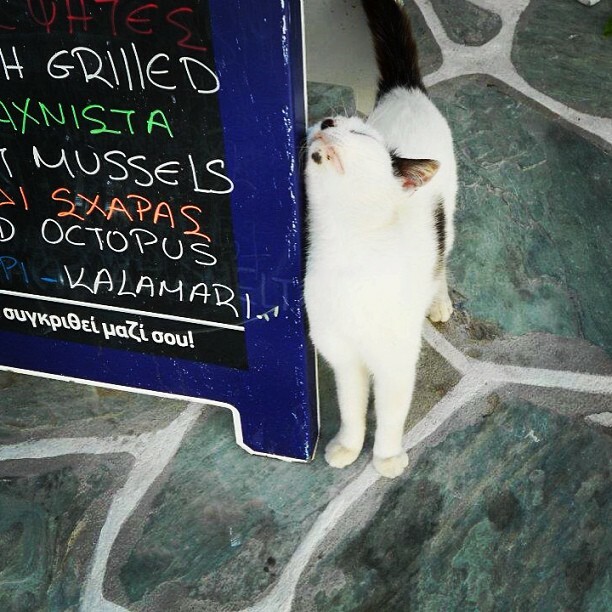 ΨΗΤΕΣ
H GRILLED
ΑΧΝΙΣΤΑ
T MUSSELS
ΔΙ ΣΧΑΡΑΣ
D OCTOPUS
ΡΙ-KALAMARI..
συγκριθεί μαζί σου!